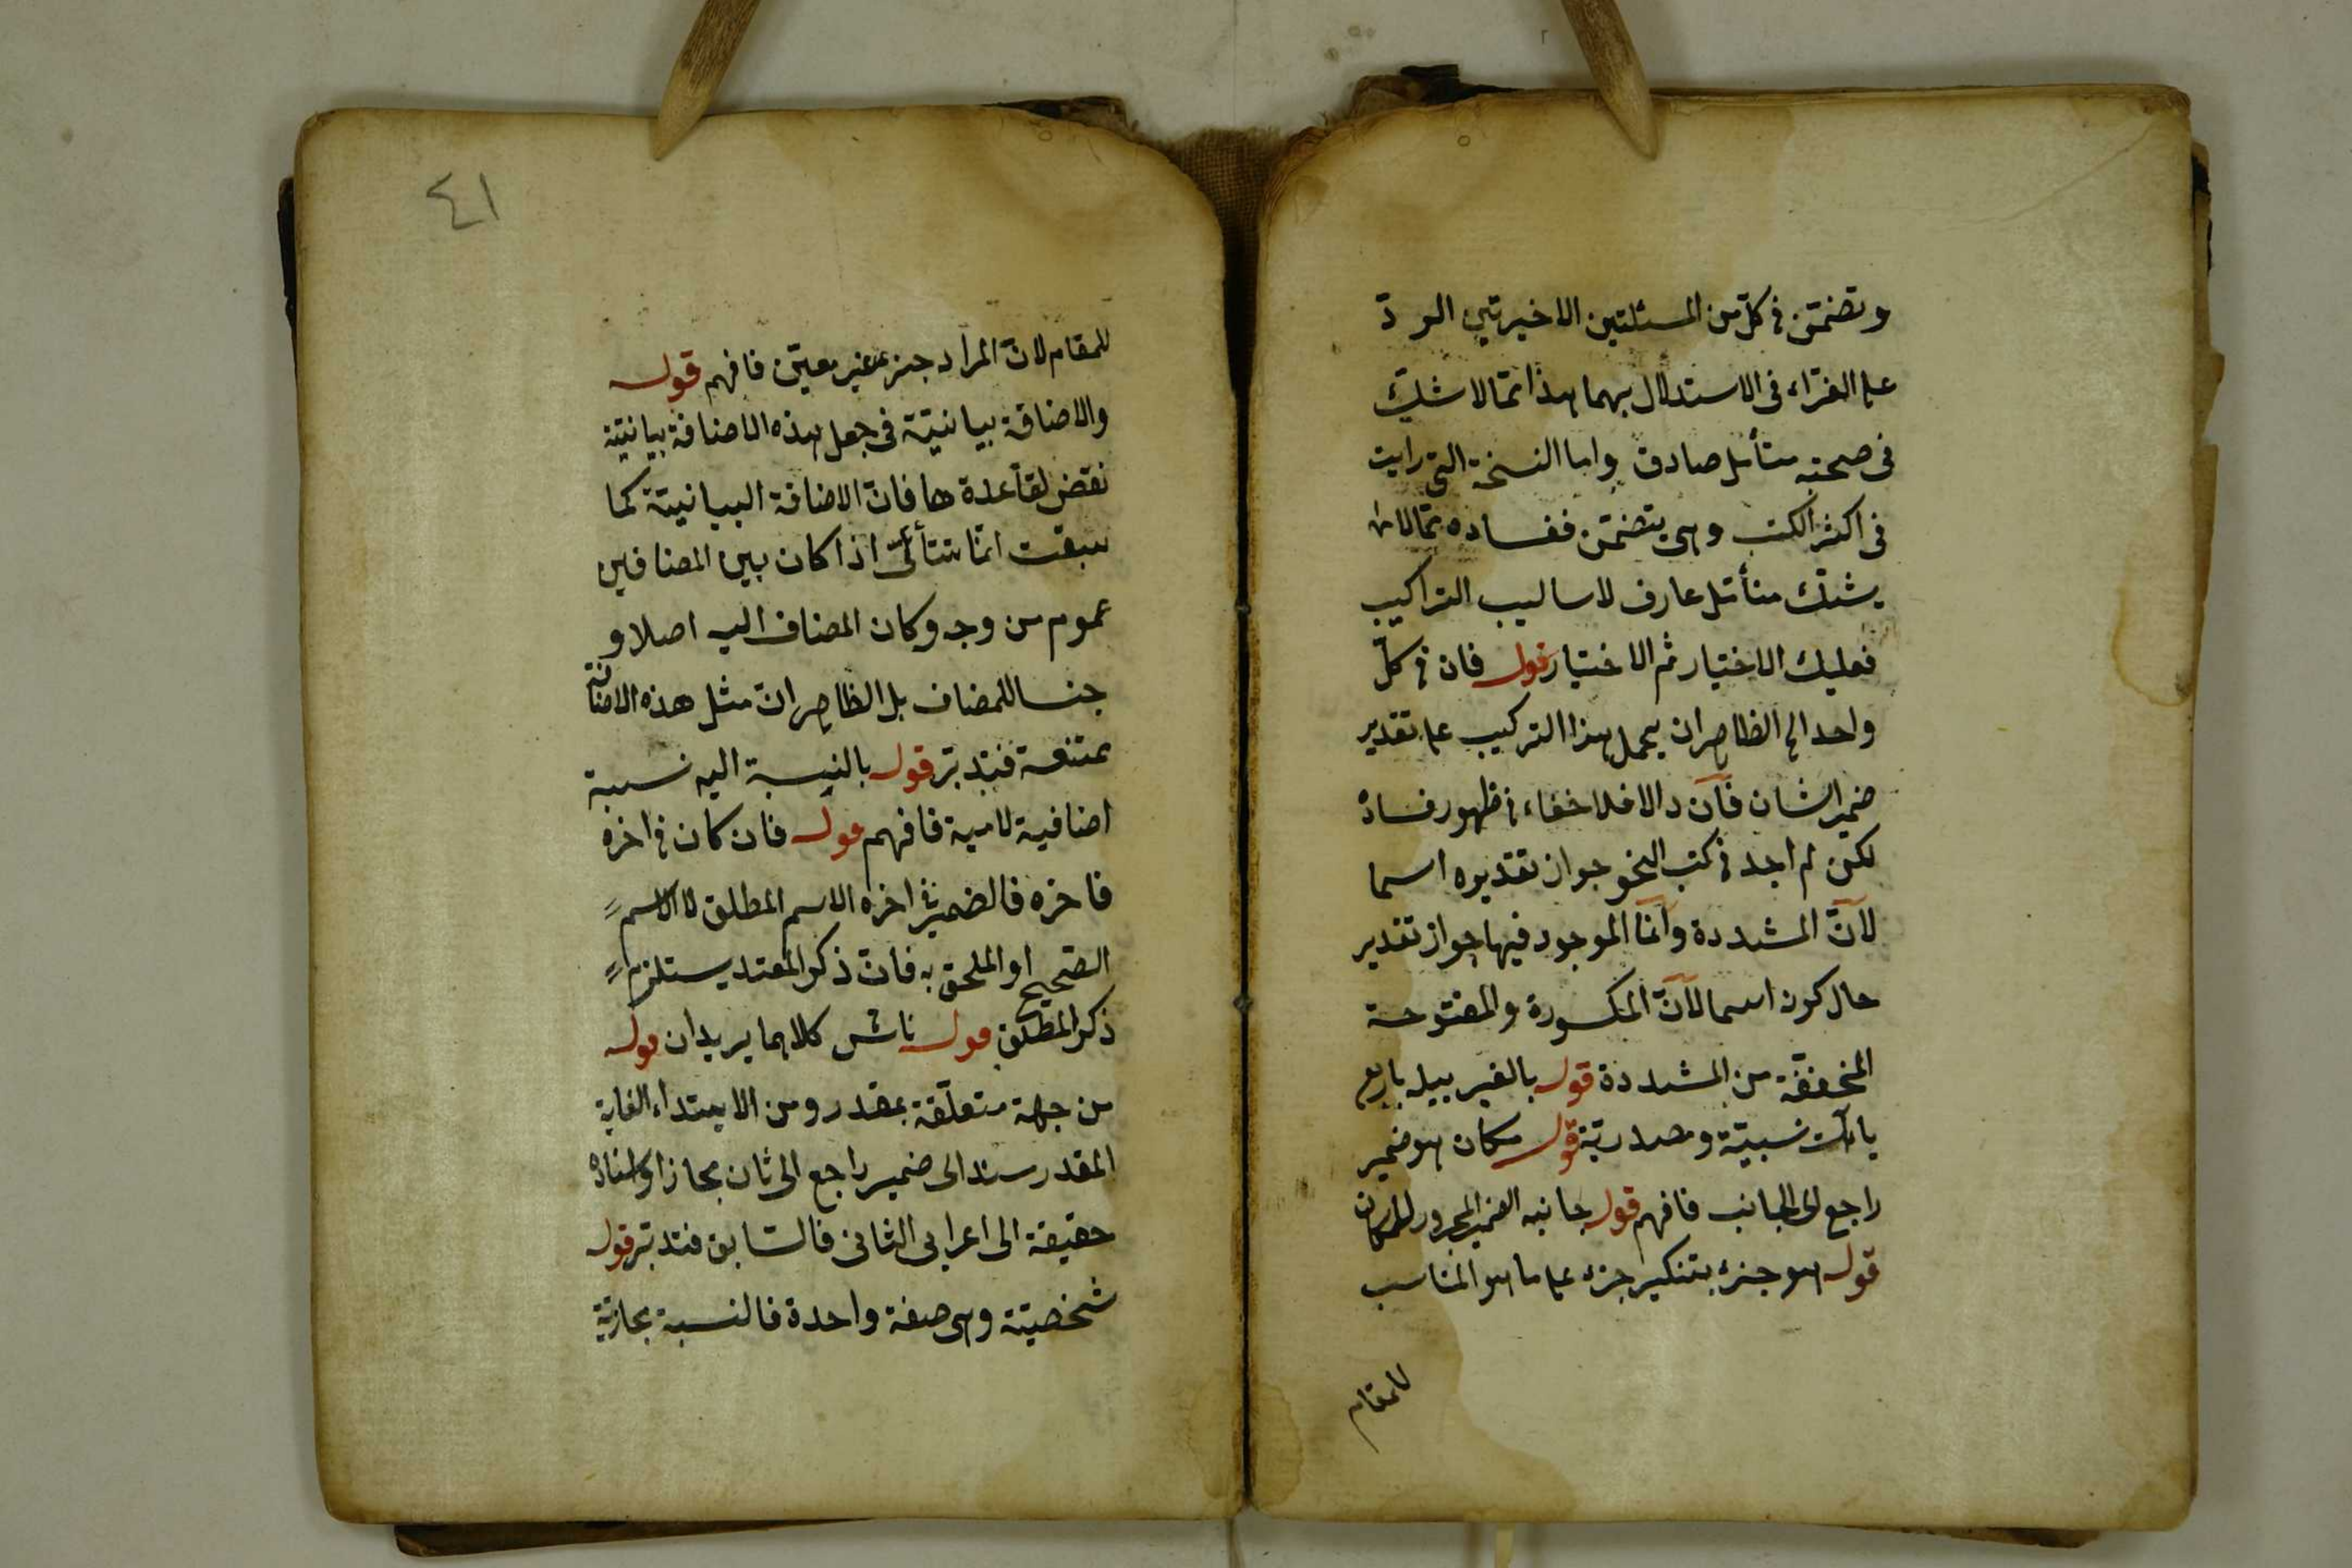 وتضمّن فى كلّ من المسئلتين الاخيرتين الردّ
على الفرّاء فى الاستدلال بهما هذا ممّا لا شكّ
فى صحته متأمل صادق واما النسخة التى رايت
فى اكثر الكتب وهى يتضمّن ففساده ممّا لا
يشكّ متأمّل عارف لاساليب التراكيب
فعليك الاختيار ثم الاختيار قوله فان فى كلّ
واحد الخ الظاهر ان يحمل هذا التركيب على تقدير
ضمير الشان فآن والا فلا خفاء فى ظهور فساده
لكن لم اجد فى كتب النحو جواز تقديره اسما
لآنّ المشددة وآنما الموجود فيها جواز تقدير
حال كون اسما لآنّ المكسورة والمفتوحة
المخففة من المشددة قوله بالغير بيله باربع
ياءآت نسبيّة ومصدريّة قوله مكان هو ضمير
راجع الى الجانب فافهم قوله جانبه الضمير المجرور للمكان
قوله هو جزء بتنكير جزء على ما هو المناسب
للمقام
٤١
للمقام لانّ المراد جزء غير معيّن فافهم قوله
والاضافة بيانيّة فى جعل هذه الاضافة بيانيّة
نقض لقاعدة ها فانّ الاضافة البيانيّة كما
سبقت انّما تتأتّى اذا كان بين المضافين
عموم من وجه وكان المضاف اليه اصلا و
جنسا للمضاف بل الظاهر انّ مثل هذه الاضافة
ممتنعة فتدبّر قوله بالنسبة اليه نسبة
اضافية لامية فافهم قوله فان كان فى اخره
فاخره فالضمير فى اخره الاسم المطلق لا الاسم
الصحيح او الملحق به فانّ ذكر المقيد يستلزم
ذكر المطلق قوله ناش كلاهما يريدان قوله
من جهة متعلّقة بمقدر ومن الابتداء الغاية
المقدر سند الى ضمير راجع الى ثان مجازا واسناده
حقيقة الى اعرابى الثانى فالسّابق فتدبّر قوله
شخصيّة وهى صفة واحدة فالنسبة مجازيّة